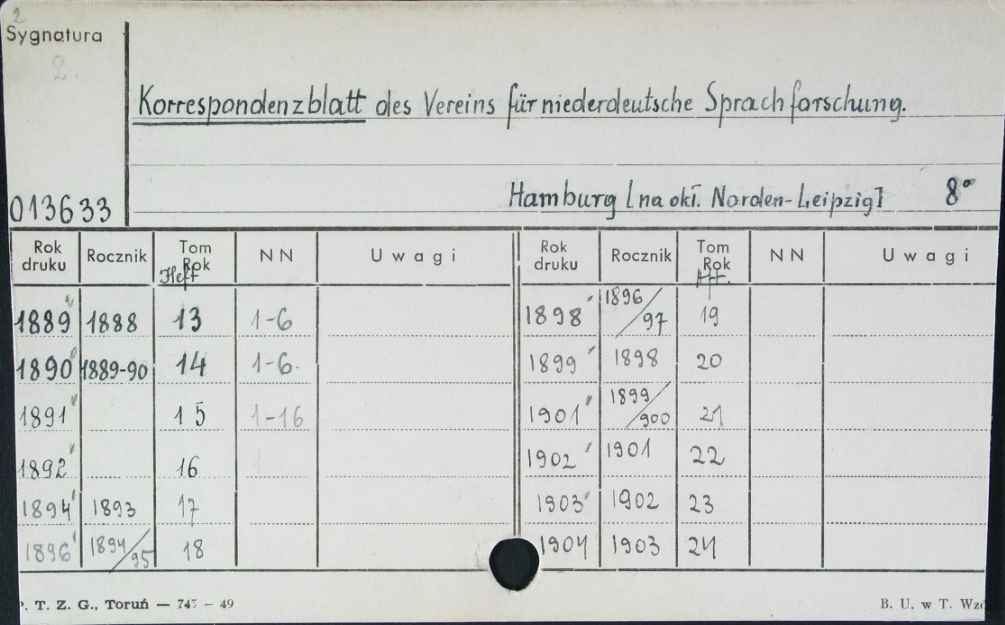 2
Sygnatura
2.
Korrespondenzblatt des Vereins für niederdeutsche Sprachforschung.
013633
Hamburg [na okł. Norden-Leipzig] 8°
Rok druku Rocznik Tom Rok Heft NN Uwagi Rok druku Rocznik Tom Rok NN Uwagi
1889 1888 13 1-6 1898 1896/97 19
1890 1889-90 14 1-6. 1899 1898 20
1891 15 1-16 1901 1899/900 21
1892 16 1902 1901 22
1894 1893 17 1903 1902 23
1896 1894/95 18 1904 1903 24
P. T. Z. G., Toruń — 745 – 49
B. U. w T. Wzó